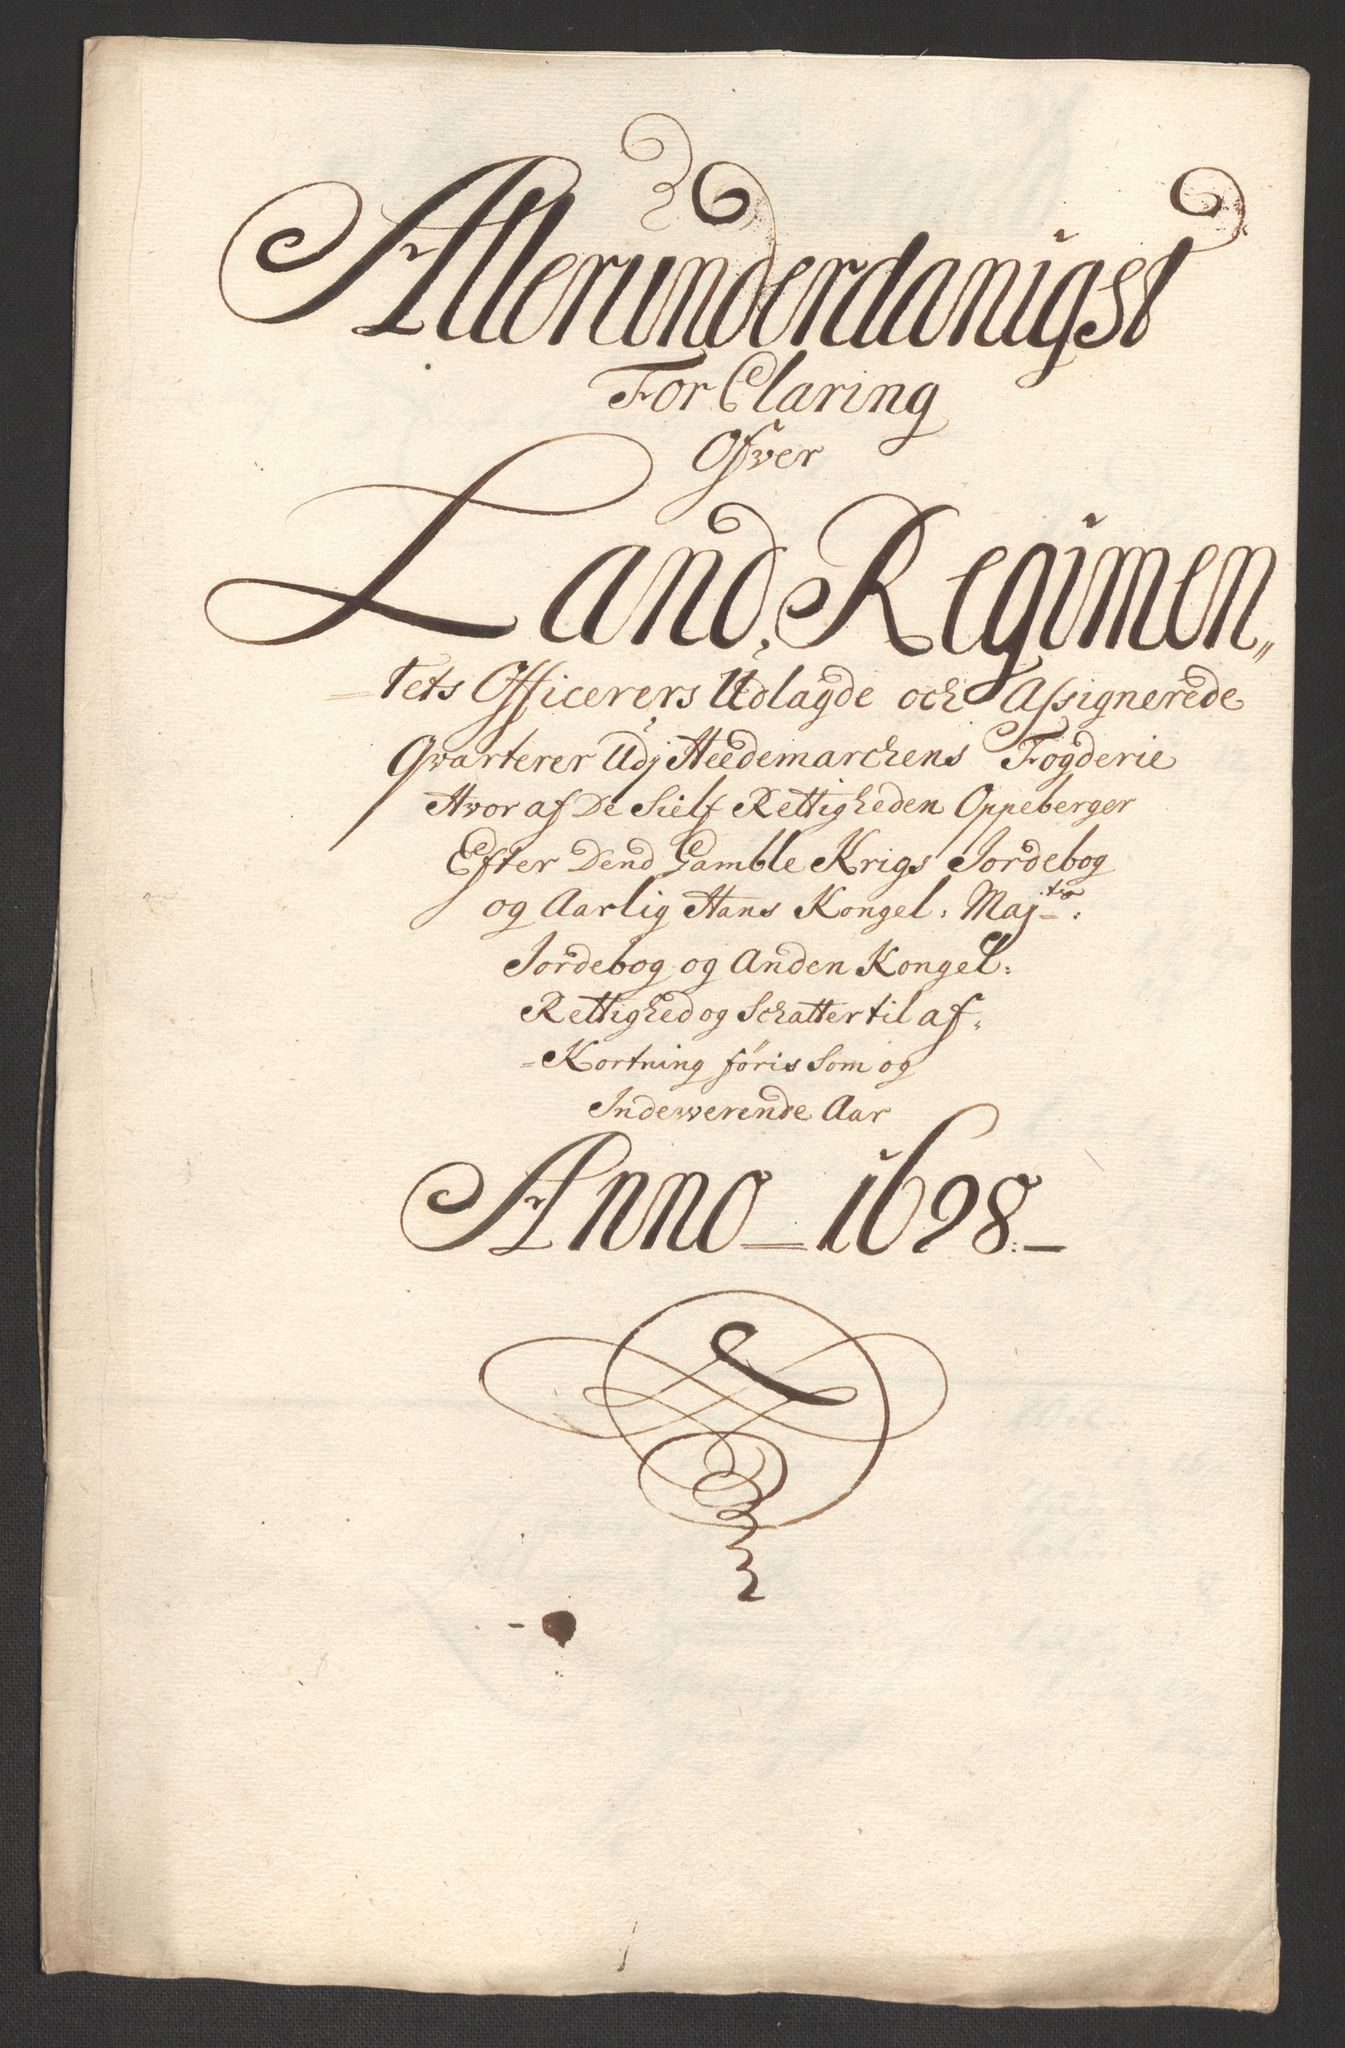 Allerunderdanigst
For Claring
Ofver
Land, Regimen,,
=tets Officerers Udlagde och Assignerede
Qvarterer Udj Heedemarchens Fogderie
Hvor af De Sielf Rettigheden Oppeberger
Efter Dend Gamble Krigs Jordebog
og Aarlig Hans Kongel: Maj:ts:
Jordebog og Anden Kongel:
Rettighed og Schatter til af=
=Kortning føris Som og
Indewerende Aar
Anno = 1698: